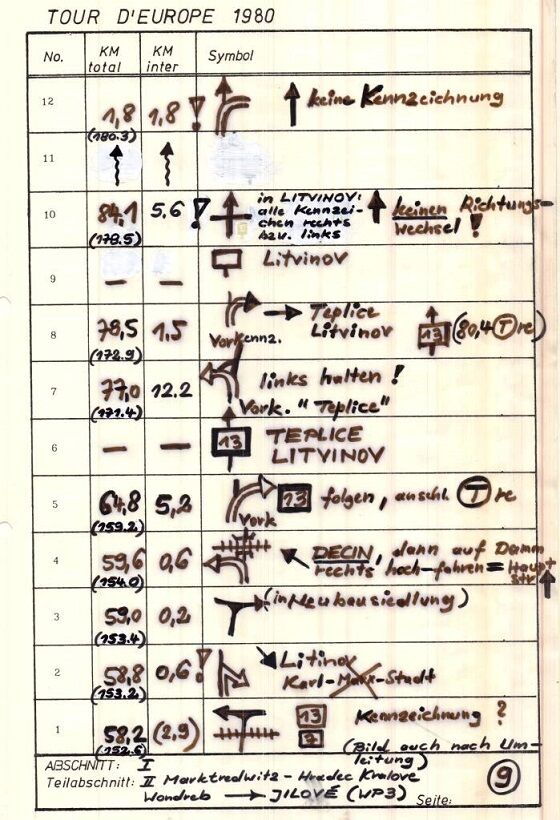 TOUR D'EUROPE 1980
No. KM total KM inter Symbol
12 1,8 (180.3) 1,8 ! keine Kennzeichnung
11
10 84,1 (178.5) 5.6 ! in LITVINOV: alle Kennzei-chen rechts bzw. links keinen Richtungs-wechsel!
9 — — Litvinov
8 78,5 (172.9) 1,5 Vorkennz. Teplice Litvinov 13 (80,4 T re)
7 77,0 (171.4) 12.2 links halten! Vork. "Teplice"
6 — — 13 TEPLICE LITVINOV
5 64,8 (159.2) 5,2 Vork 13 folgen, anschl. T re
4 59,6 (154.0) 0,6 DECIN, dann auf Damm rechts hoch-fahren = Haupt str
3 59,0 (153.4) 0,2 (in Neubausiedlung)
2 58,8 (153.2) 0,6 ! Litinov Karl-Marx-Stadt
1 58,2 (152.6) (2,9) 13 7 Kennzeichnung ?
(Bild auch nach Um-leitung)
ABSCHNITT: I
Teilabschnitt: II Marktredwitz - Hradec Kralove
Wondreb → JILOVÉ (WP3) Seite: 9